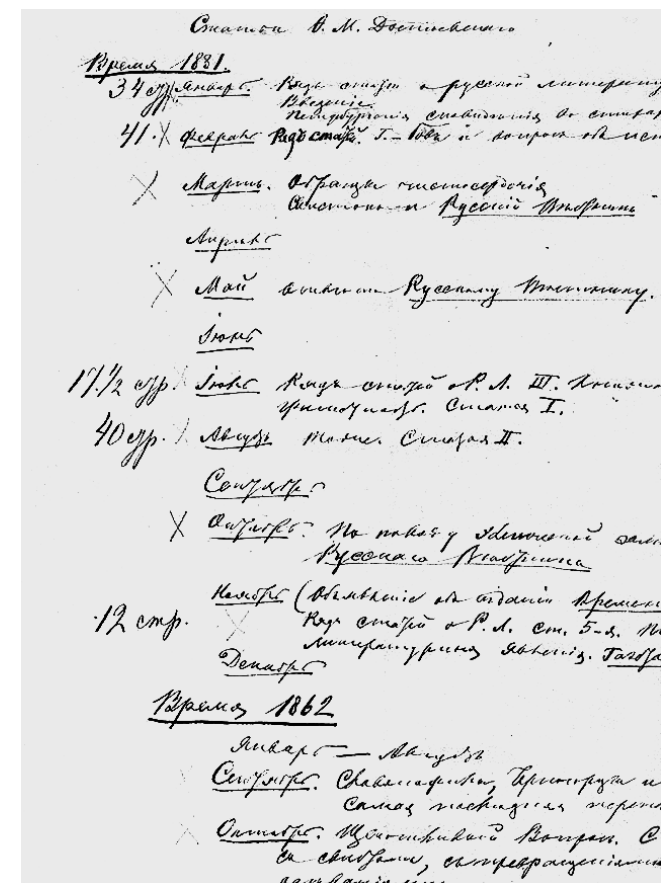 Статьи Ѳ. М. Достоевскаго
Время 1881.
34 стр. Январь. Рядъ статей о русской литерату
Введеніе.
Петербургскія сновидѣнія въ стихах
41. X Февраль Рядъ статей. Г. –бовъ и вопросъ объ иск
X Мартъ. Образцы чистосердечія
Свистокъ и Русскій Вѣстникъ
Апрѣль
X Май Отвѣтъ Русскому Вѣстнику.
Іюнь
17 1/2 стр. X Іюль Рядъ статей о Р. Л. III. Книжно
грамотность. Статья I.
40 стр. X Августъ тоже. Статья II.
Сентябрь
X Октябрь. По поводу
Русскаго Вѣстника
Ноябрь (Объявленіе объ изданіи Времени
12 стр. X Рядъ статей о Р. Л. ст. 5-я. По
Литературныя явленія.
Декабрь
Время 1862
Январь — Августъ
Сентябрь. Славянофилы, Черногорцы и
самая послѣдняя пере
X Октябрь. Щекотливый Вопросъ. С
со свистомъ, съ превращеніями